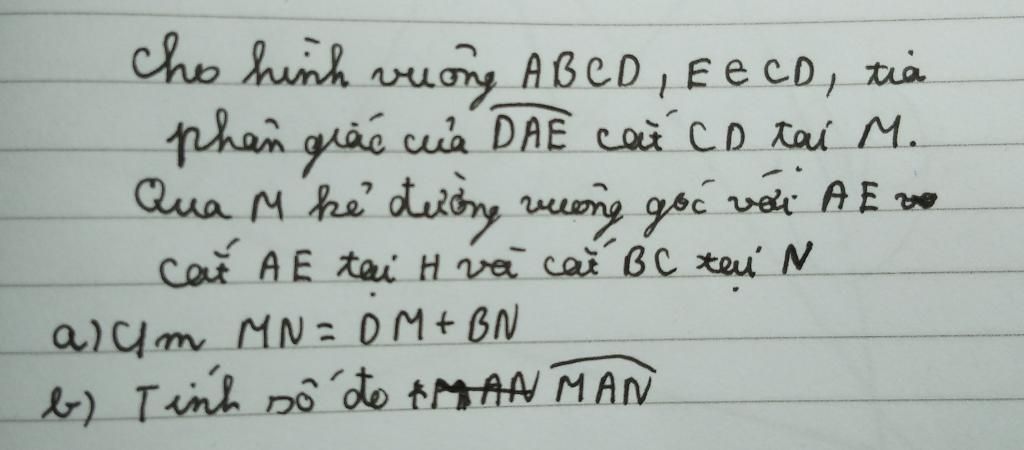 Cho hình vuông ABCD, E ∈ CD, tia
phân giác của DAE cắt CD tại M.
Qua M kẻ đường vuông góc với AE
cắt AE tại H và cắt BC tại N
a) Cm MN = DM + BN
b) Tính số đo MAN